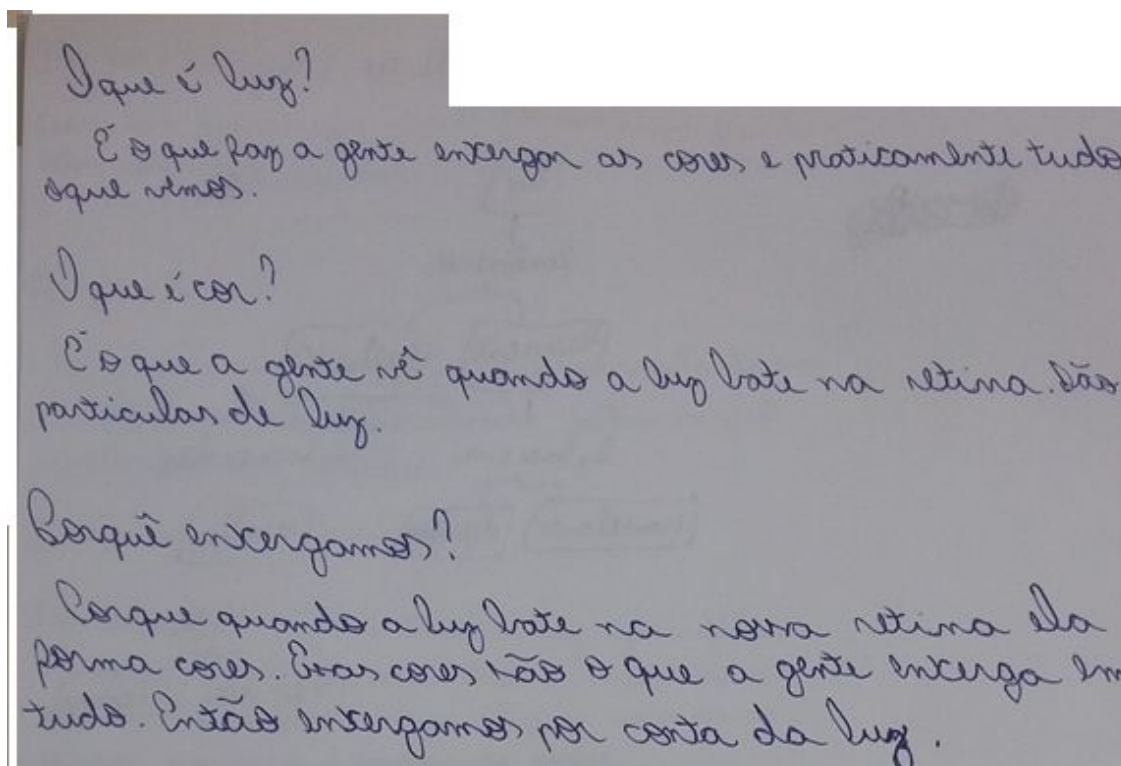 Oque é luz?
É o que faz a gente enxergar as cores e praticamente tudo
oque vemos.
O que é cor?
É o que a gente vê quando a luz bate na retina. São
particulas de luz.
Porquê enxergamos?
Porque quando a luz bate na nossa retina ela
forma cores. Essas cores são o que a gente enxerga em
tudo. Então enxergamos por conta da luz.